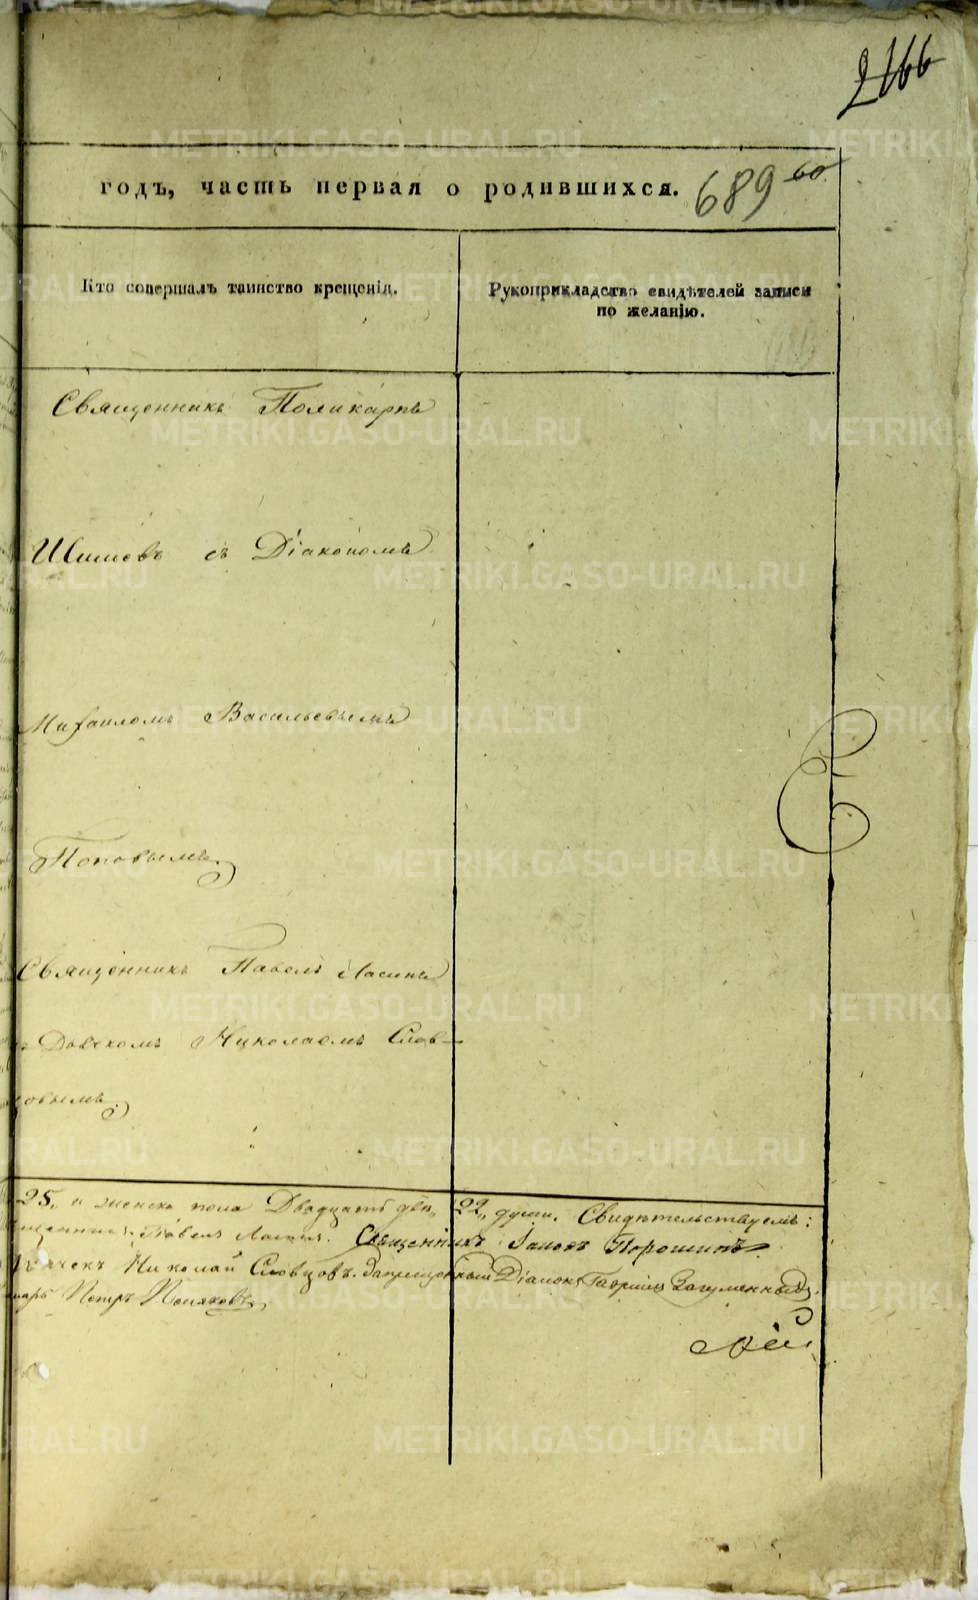 годъ, часть первая о родившихся. 689 60
Кто совершалъ таинство крещенія.
Рукоприкладство свидѣтелей записи
по желанію.
Священникъ Поликарпъ
съ Діакономъ
Михаиломъ Васильевымъ
Поповымъ.
Священникъ Павелъ Ласинъ
Дьячкомъ Николаемъ Слов-
цовымъ.
25, и женска пола Двадцать двѣ 22, души. Свидѣтельствуемъ:
Павелъ Ласинъ. Священникъ Іаковъ Порошинъ
Николай Словцовъ. Запрещенный Діаконъ Гавріилъ Загуменныхъ.
Петръ Поляковъ.
METRIKI.GASO-URAL.RU